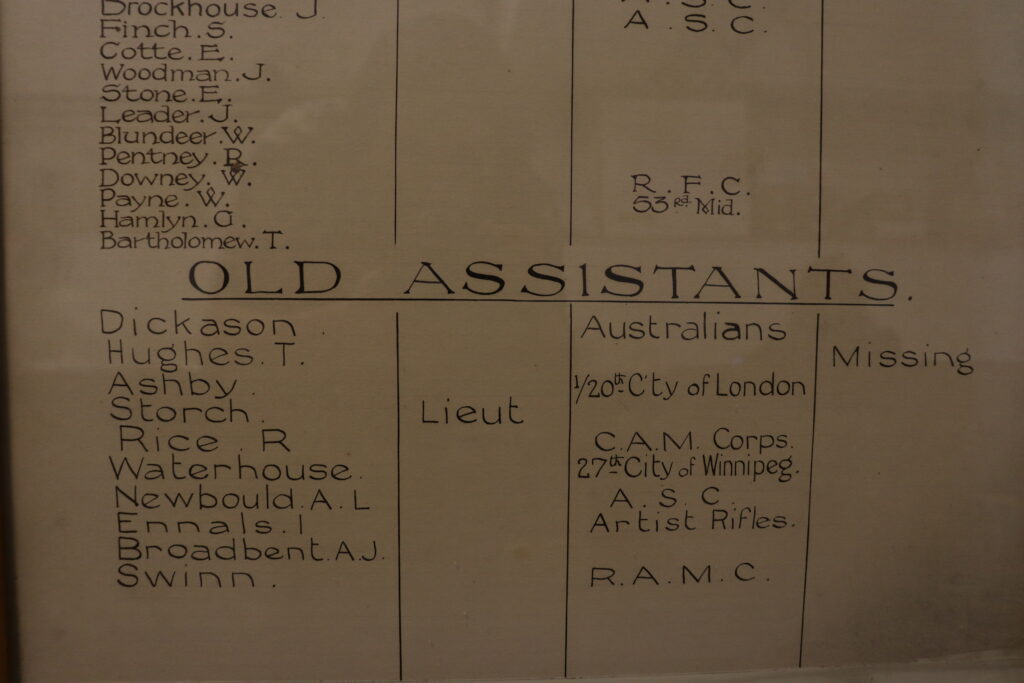 Brockhouse. J.
A. S. C.
Finch. S.
A. S. C.
Cotte. E.
Woodman. J.
Stone. E.
Leader. J.
Blundeer. W.
Pentney. R.
Downey. W. R. F. C.
Payne. W. 53rd Mid.
Hamlyn. G.
Bartholomew. T.
OLD ASSISTANTS.
Dickason . Australians
Hughes. T. Missing
Ashby . 1/20th City of London
Storch . Lieut
Rice . R C. A. M. Corps.
Waterhouse. 27th City of Winnipeg.
Newbould. A. L A. S. C.
Ennals. I Artist Rifles.
Broadbent. A. J.
Swinn . R. A. M. C.